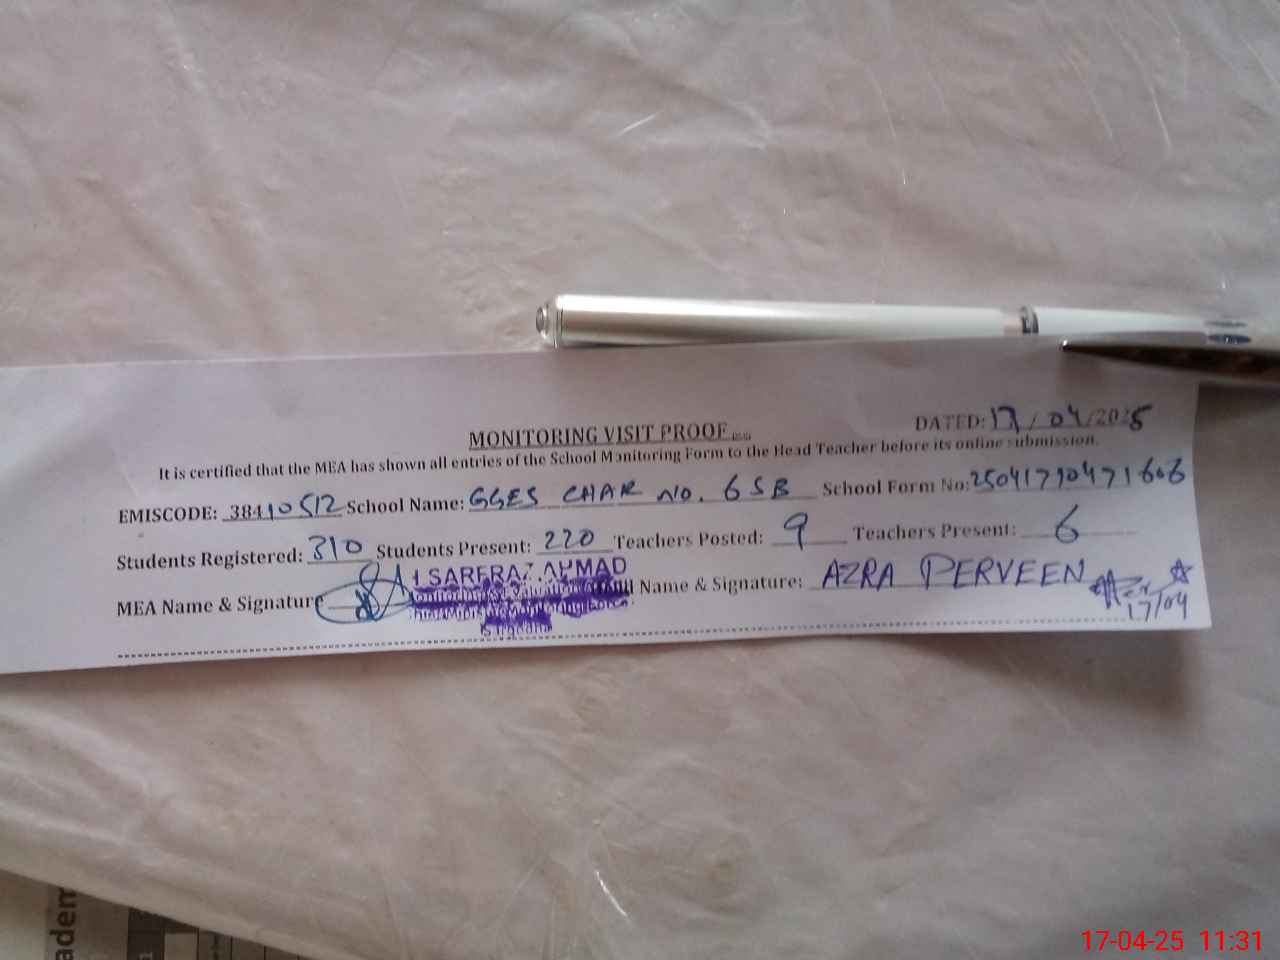 DATED: 17/04/2025
MONITORING VISIT PROOF
It is certified that the MEA has shown all entries of the School Monitoring Form to the Head Teacher before its online submission.
EMISCODE: 38410512 School Name: GGES CHAK NO. 6 SB School Form No: 25041790471606
Students Registered: 310 Students Present: 220 Teachers Posted: 9 Teachers Present: 6
MEA Name & Signature SARFRAZ AHMAD Name & Signature: AZRA PERVEEN
17/04
adem
17-04-25 11:31